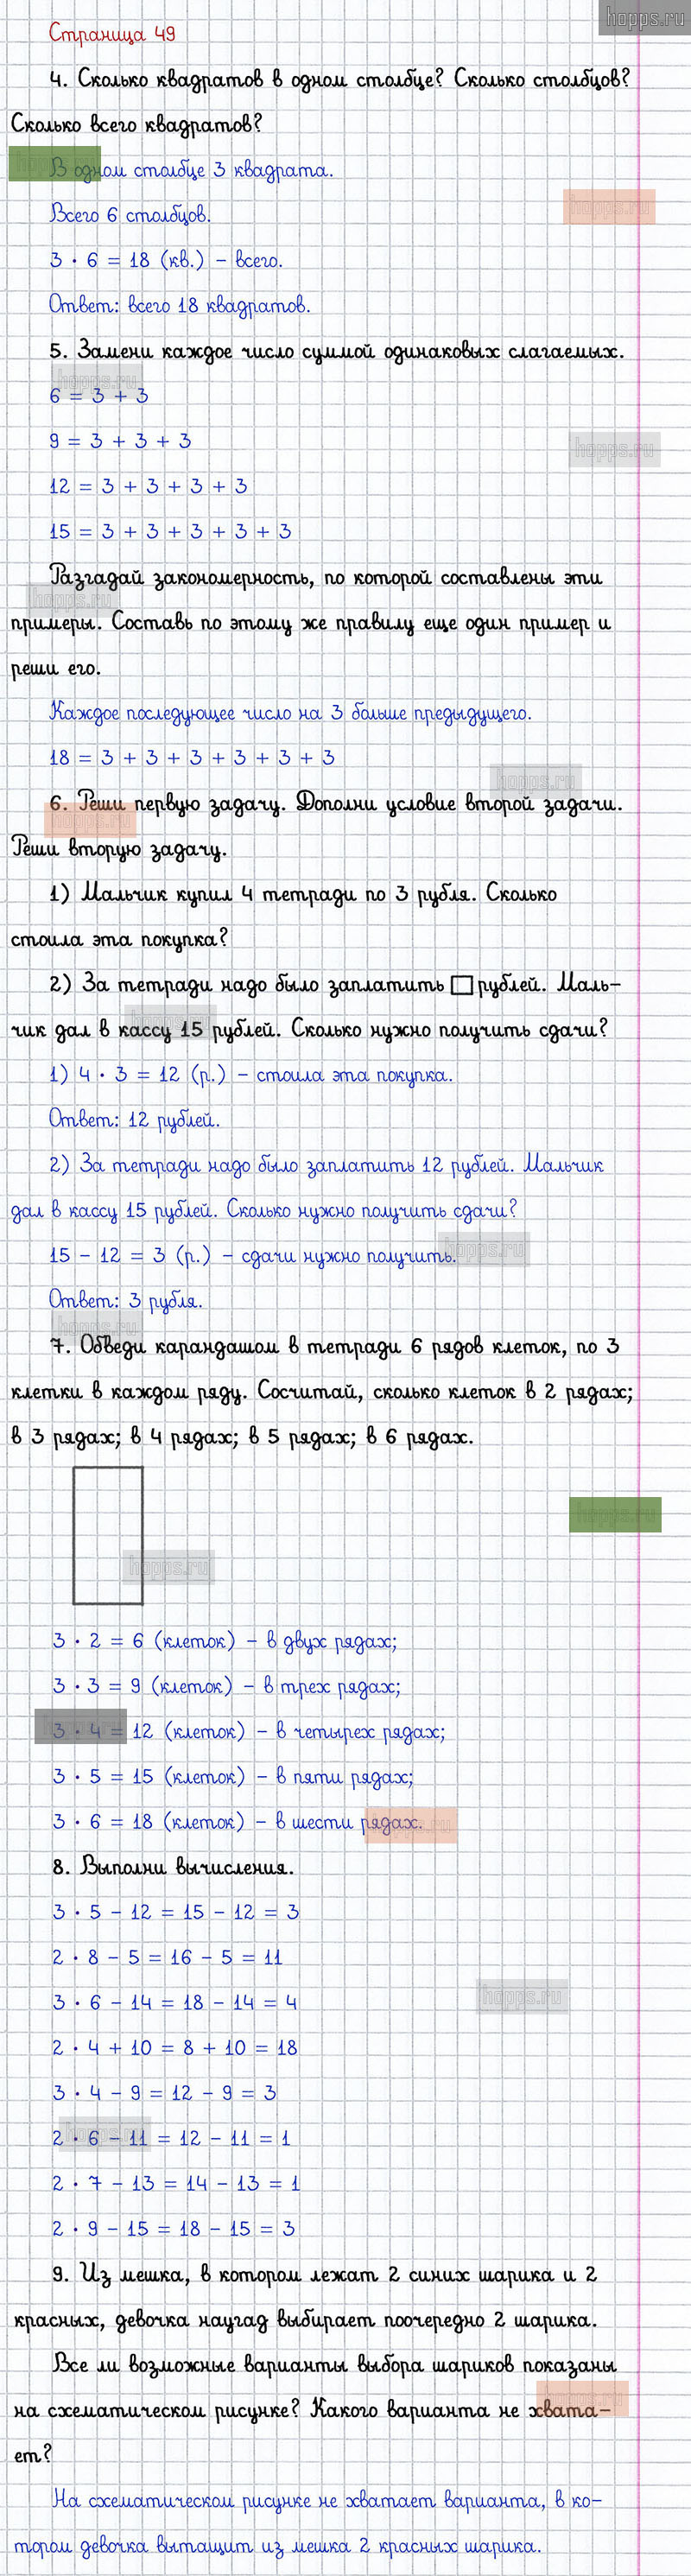 hopps.ru
Страница 49
4. Сколько квадратов в одном столбце? Сколько столбцов?
Сколько всего квадратов?
В одном столбце 3 квадрата.
hopps.ru
Всего 6 столбцов.
3 · 6 = 18 (кв.) – всего.
Ответ: всего 18 квадратов.
5. Замени каждое число суммой одинаковых слагаемых.
hopps.ru
6 = 3 + 3
9 = 3 + 3 + 3
hopps.ru
12 = 3 + 3 + 3 + 3
15 = 3 + 3 + 3 + 3 + 3
Разгадай закономерность, по которой составлены эти
hopps.ru
примеры. Составь по этому же правилу еще один пример и
реши его.
Каждое последующее число на 3 больше предыдущего.
18 = 3 + 3 + 3 + 3 + 3 + 3
hopps.ru
6. Реши первую задачу. Дополни условие второй задачи.
hopps.ru
Реши вторую задачу.
1) Мальчик купил 4 тетради по 3 рубля. Сколько
стоила эта покупка?
2) За тетради надо было заплатить □ рублей. Маль-
hopps.ru
чик дал в кассу 15 рублей. Сколько нужно получить сдачи?
1) 4 · 3 = 12 (р.) – стоила эта покупка.
Ответ: 12 рублей.
2) За тетради надо было заплатить 12 рублей. Мальчик
дал в кассу 15 рублей. Сколько нужно получить сдачи?
15 – 12 = 3 (р.) – сдачи нужно получить.
hopps.ru
Ответ: 3 рубля.
hopps.ru
7. Обведи карандашом в тетради 6 рядов клеток, по 3
клетки в каждом ряду. Сосчитай, сколько клеток в 2 рядах;
в 3 рядах; в 4 рядах; в 5 рядах; в 6 рядах.
hopps.ru
hopps.ru
3 · 2 = 6 (клеток) – в двух рядах;
3 · 3 = 9 (клеток) – в трех рядах;
3 · 4 = 12 (клеток) – в четырех рядах;
3 · 5 = 15 (клеток) – в пяти рядах;
3 · 6 = 18 (клеток) – в шести рядах.
hopps.ru
8. Выполни вычисления.
3 · 5 – 12 = 15 – 12 = 3
2 · 8 – 5 = 16 – 5 = 11
3 · 6 – 14 = 18 – 14 = 4
hopps.ru
2 · 4 + 10 = 8 + 10 = 18
3 · 4 – 9 = 12 – 9 = 3
2 · 6 – 11 = 12 – 11 = 1
hopps.ru
2 · 7 – 13 = 14 – 13 = 1
2 · 9 – 15 = 18 – 15 = 3
9. Из мешка, в котором лежат 2 синих шарика и 2
красных, девочка наугад выбирает поочередно 2 шарика.
Все ли возможные варианты выбора шариков показаны
hopps.ru
на схематическом рисунке? Какого варианта не хвата-
ет?
На схематическом рисунке не хватает варианта, в ко-
тором девочка вытащит из мешка 2 красных шарика.